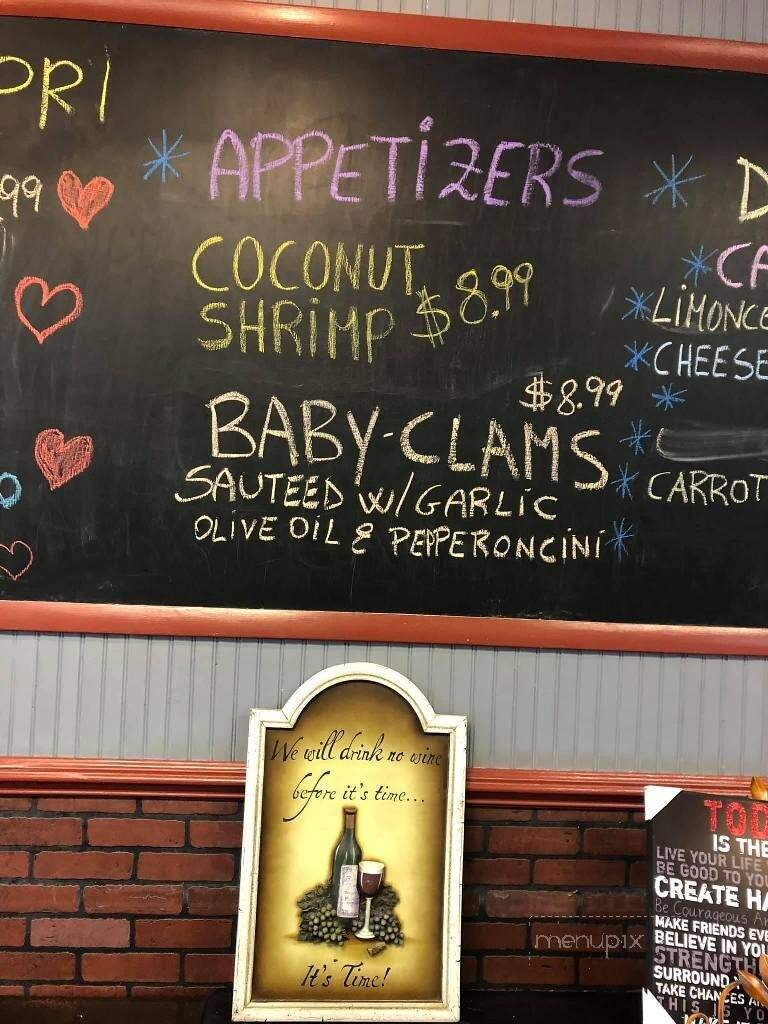 PRI
99
* APPETIZERS *
COCONUT
SHRIMP $8.99
$8.99
BABY-CLAMS
SAUTEED W/GARLIC
OLIVE OIL & PEPPERONCINI
D
* CA
* LIMONCE
* CHEESE
*
*
* CARROT
*
We will drink no wine
before it's time...
It's Time!
TOD
IS THE
LIVE YOUR LIFE
BE GOOD TO YOU
CREATE HA
Be Courageous A
MAKE FRIENDS EVE
BELIEVE IN YOU
STRENGTH
SURROUND
TAKE CHANCES A
THIS IS YO
menupix